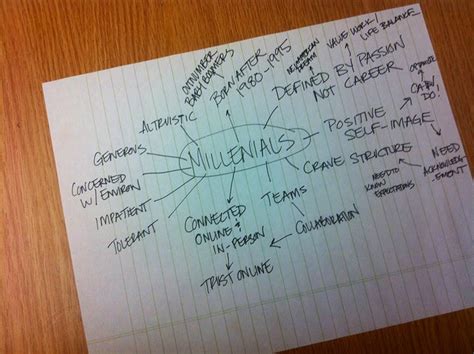 OUTNUMBER
BABY BOOMERS
BORN AFTER
1980-1995
NEW AMERICAN
DREAM
VALUE WORK/
LIFE BALANCE
DEFINED BY PASSION
NOT CAREER
OPTIMISTIC
CAN
DO!
POSITIVE
SELF-IMAGE
NEED
ACKNOWLEDG-
EMENT
CRAVE STRUCTURE
NEED TO
KNOW
EXPECTATIONS
ALTRUISTIC
MILLENIALS
GENEROUS
CONCERNED
W/ ENVIRON
IMPATIENT
TOLERANT
CONNECTED
ONLINE &
IN-PERSON
TRUST ONLINE
TEAMS
COLLABORATION